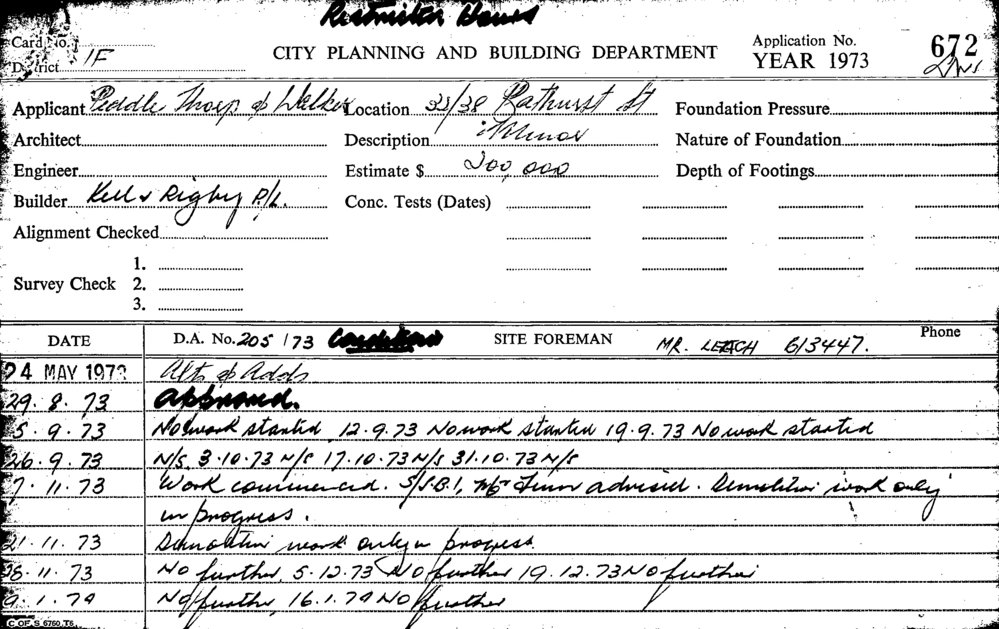 Card No. 1F
CITY PLANNING AND BUILDING DEPARTMENT
Application No. 672
District
YEAR 1973
Applicant Peddle Thorp & Walker Location 33/38 Bathurst St Foundation Pressure
Architect Description Nature of Foundation
Engineer Estimate $ 200,000 Depth of Footings
Builder Kell & Rigby P/L. Conc. Tests (Dates)
Alignment Checked
1.
Survey Check 2.
3.
DATE D.A. No. 205/73 SITE FOREMAN MR. LEACH Phone 613447.
24 MAY 1973 Alts & Adds
29. 8. 73 Approved.
5. 9. 73 No work started 12.9.73 No work started 19.9.73 No work started
26. 9. 73 N/S 3.10.73 N/S 17.10.73 N/S 31.10.73 N/S
7. 11. 73 Work commenced. Mr advised. Demolition work only
in progress.
21. 11. 73 Demolition work only in progress.
28. 11. 73 No further 5.12.73 No further 19.12.73 No further
9. 1. 74 No further 16.1.74 No further
C.OF.S. 6760.T6